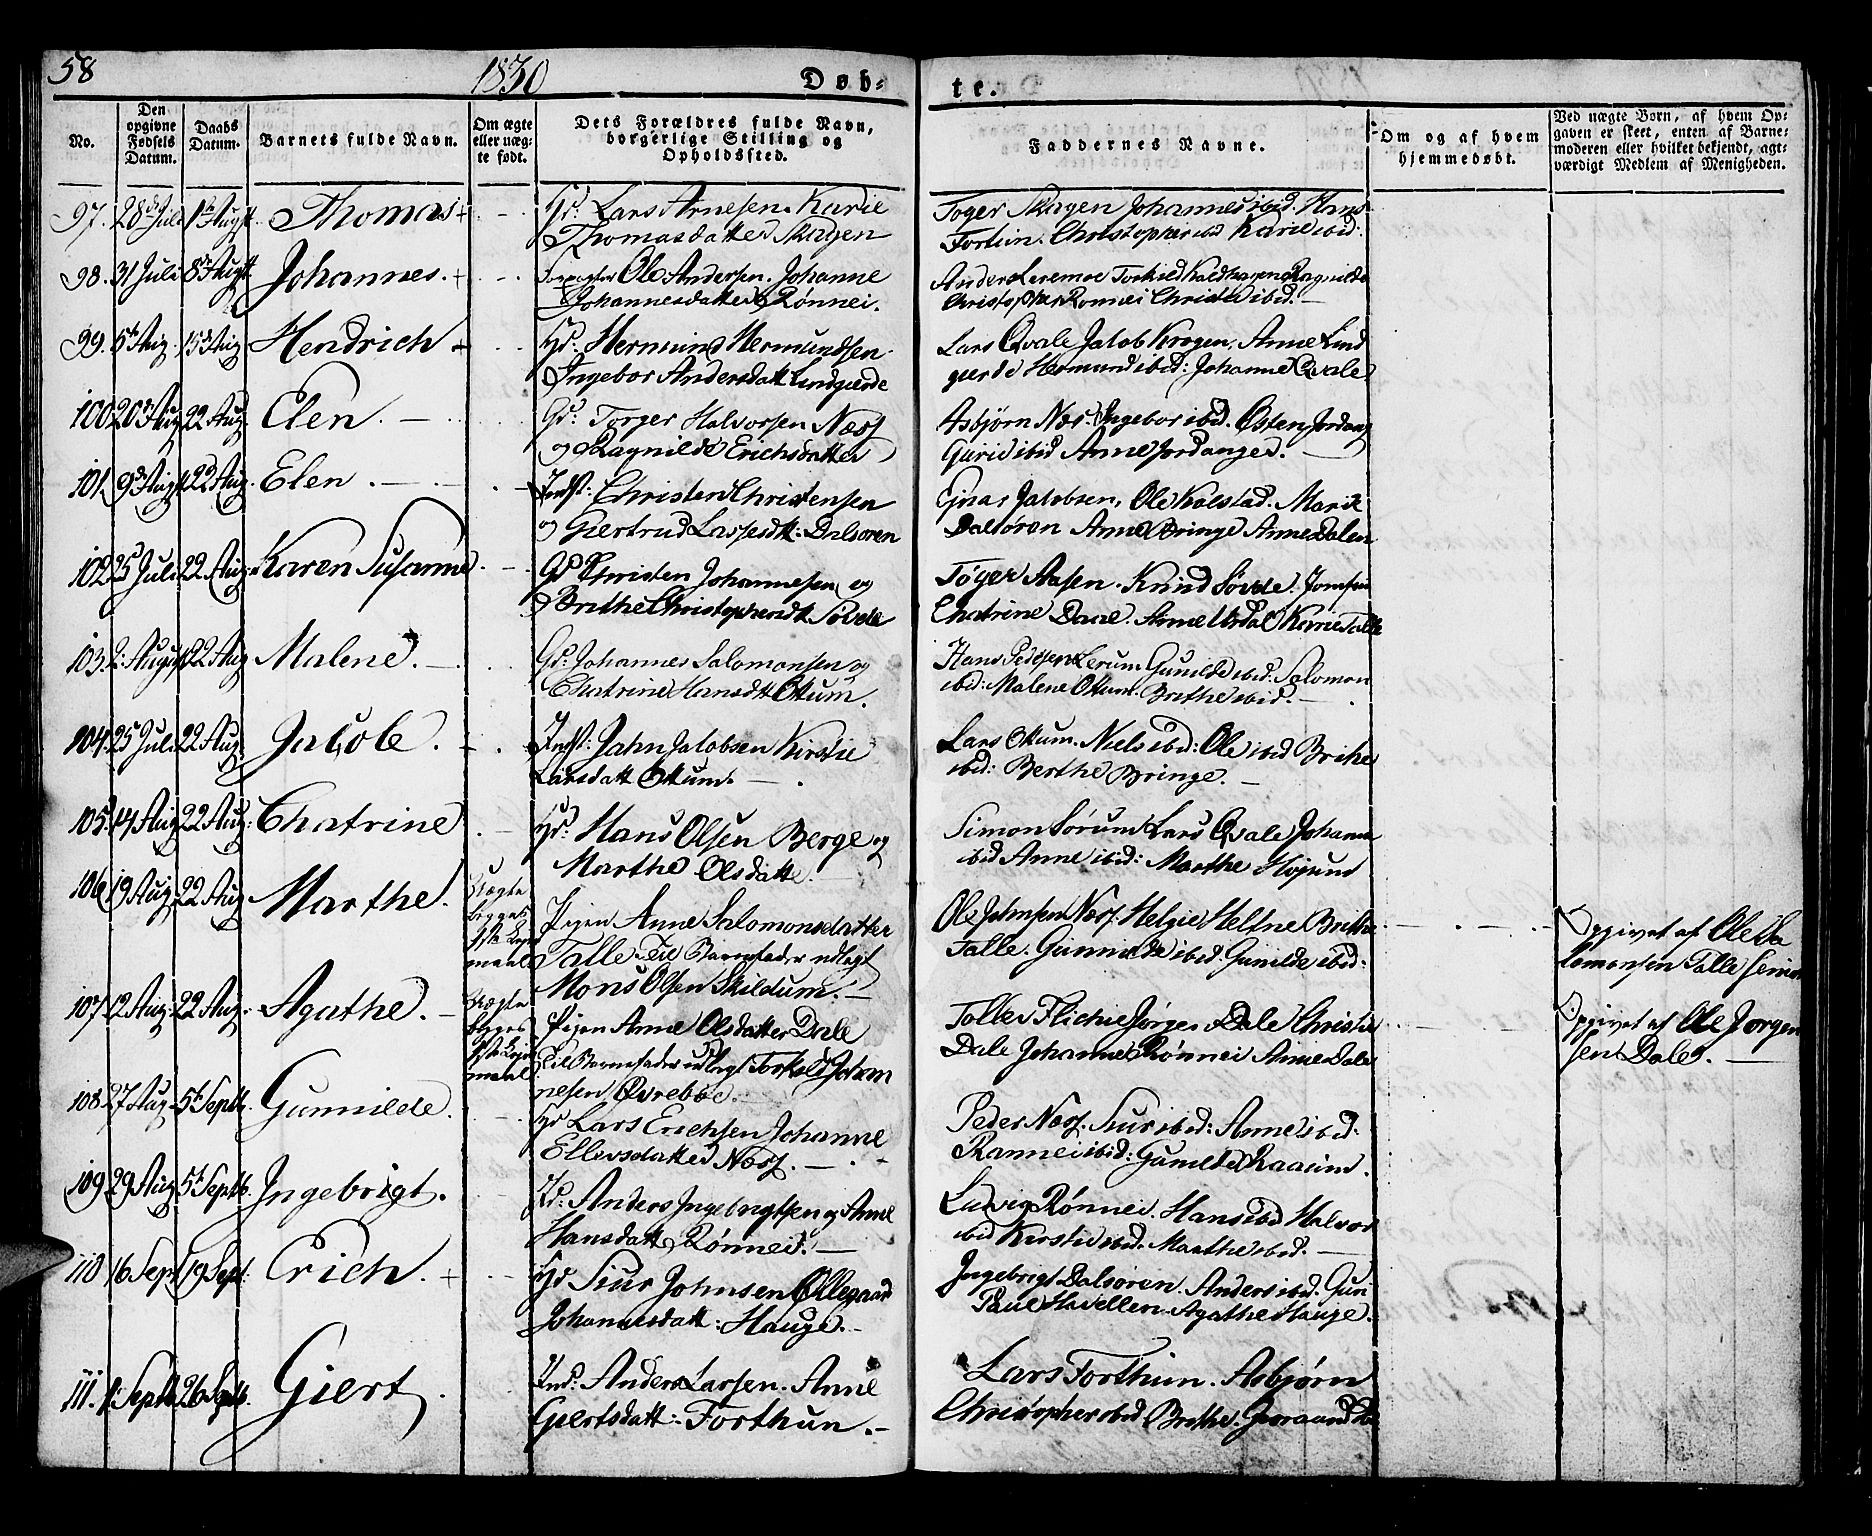 58
1830
Døb-
te.
No.
Den opgivne Fødsels Datum.
Daabs Datum.
Barnets fulde Navn.
Om ægte eller uægte født.
Dets Forældres fulde Navn, borgerlige Stilling og Opholdssted.
Faddernes Navne.
Om og af hvem hjemmedøbt.
Ved uægte Børn, af hvem Opgaven er skeet, enten af Barnemoderen eller hvilket bekjendt, agtværdigt Medlem af Menigheden.
97. 28 Juli 1 Augst. Thomas + Gd: Lars Arnesen. Karie
Thomasdatter Skagen
Toger Skagen Johannes ibid. Hans
Fortun. Christopher ibid Karie ibid:
98. 31 Juli 8 Augst Johannes. + Ole Andersen. Johanne
Johannesdatter Rønnei.
Anders Leremoe Torkild Kaldhagen Ragnilde
Christopher Rønnei Christie ibid. —
99. 5t Aug. 15d Aug Hendrich Gd: Hermund Hermundsen
Ingebor Andersdatt Lindgierde
Lars Qvale Jacob Krogen. Anne Lind
gierde Hermund ibid: Johanne Qvale
100 20 Aug 22 Aug. Elen. — Gd: Torger Halvorsen Næss
og Ragnilde Erichsdatter
Asbjørn Næs. Ingebor ibid. Østen Jordang
Gurie ibid Anne Jordanger. —
101. 9 Augt 22 Aug. Elen. — Indst: Christen Christensen
og Giertrud Lassesdtt: Dalsøren
Jacobsen, Ole Kolstad. Marie
Dalsøren Anne Bringe Anne Dalen
102 25 Juli 22 Aug: Karen Susanne Gd Christen Johannesen og
Brithe Christophersdt Søvde
Tøger Aasen. Knud Søvde. Jomfru
Chatrine Daae. Anne Urdal Karie Talle
103. 2: August 22 Aug Malene. — Gd: Johannes Salomonsen og
Chatrine Hansdtt Ottum.
Hans Pedersen Lerum Gunilde ibid. Salomon
ibid: Malene Ottum. Brithe ibid. —
104. 25 Juli 22 Aug. Jacob. Indst: Jahn Jacobsen Kirstie
Larsdatt Ottum. —
Lars Ottum. Niels ibid: Ole ibid Brithe
ibid: Berthe Bringe. —
105. 14 Aug 22 Aug: Chatrine Gd: Hans Olsen Berge og
Marthe Olsdatte.
Simon Sørum Lars Qvale Johanne
ibid Anne ibid: Marthe
106 19 Aug. 22 Aug Marthe. Uægte
begges
1ste Leier
maal
Pigen Anne Salomonsdatter
Talle Til Barnefader udlagt
Mons Olsen Skildum. —
Ole Johnsen Næss. Helgie Heltne Brithe
Talle. Gunnilde ibid. Gunilde ibid:
Opgivet af Ole Sa
lomonsen Talle
107 12 Aug: 22 Aug: Agathe. — Uægte
begges
1ste Leier
maal
Pigen Anne Olsdatter Dale
Til Barnefader udlagt Torkild Johan
nesen Øvrebøe. —
Tollev Flichie Jørgen Dale Christie
Dale Johanne Rønnei Anne Dale
Opgivet af Ole Jørgen
sen Dale. —
108 27 Aug. 5t Septb. Gunnilde. Gd Lars Erichsen Johanne
Ellevsdatter Næss. —
Peder Næss. Siur ibid: Anne ibid:
Rannei ibid: Gunilde Kaasum.
109 29 Aug 5t Septb. Ingebrigt. Gd: Anders Ingebrigtsen og Anne
Hansdatt Rønnei. —
Ludvig Rønnei. Hans ibid Halvor
ibid Kirstie ibid. Marthe ibid. —
110 16 Sept 19 Sept: Erich. + Gd Siur Johnsen Øllegaard
Johannesdatt: Hauge. —
Ingebrigt Dalsøren. Anders ibid. Guri
Paul Havellen Agathe Hauge.
111. 1 Septb 26 Septb. Giert. Ind: Anders Larsen. Anne
Giertsdatt: Forthun. —
Lars Forthun. Asbjørn
Christopher ibid Brithe.